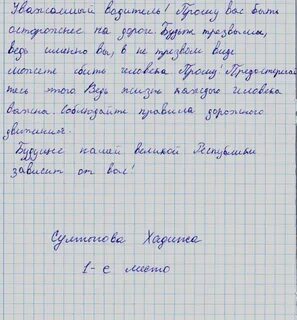 Уважаемый водитель! Прошу вас быть
осторожнее на дороге. Будьте трезвыми,
ведь именно вы, в не трезвом виде
можете сбить человека Прошу! Предостерегай
тесь этого Ведь жизнь каждого человека
важна. Соблюдайте правила дорожного
движения.
Будущее нашей великой Республики
зависит от вас!
Султонова Хадижа
1-е место